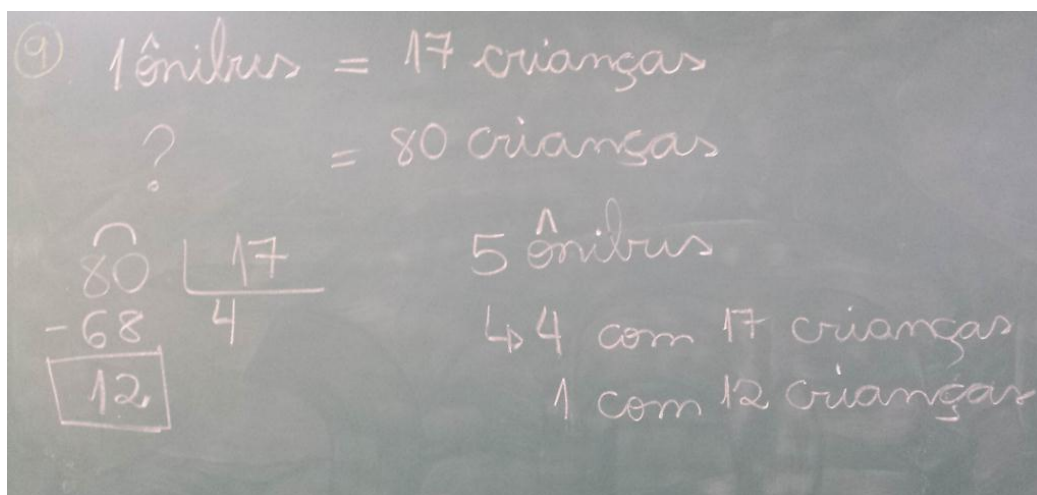 9 1 ônibus = 17 crianças
? = 80 crianças
80 17
- 68 4
12
5 ônibus
↳ 4 com 17 crianças
1 com 12 crianças